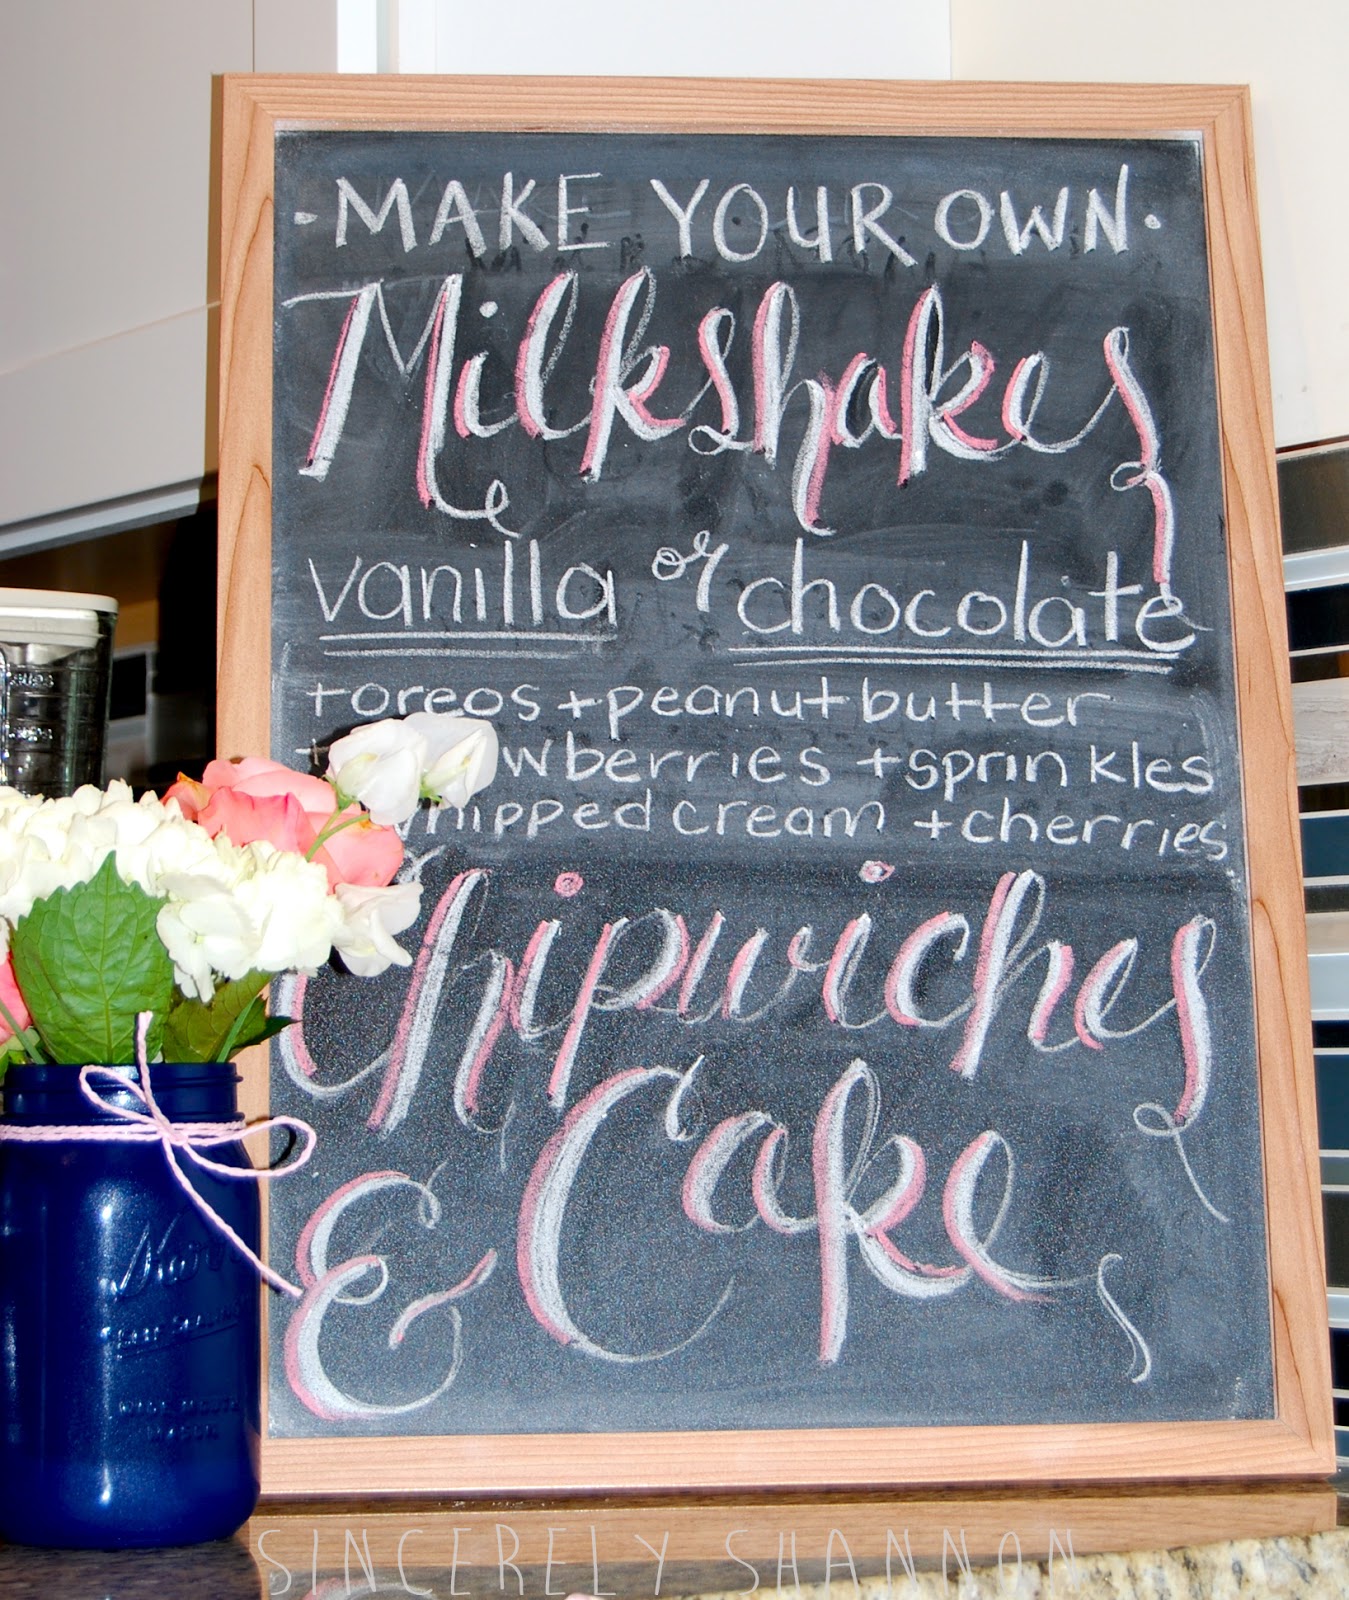 ·MAKE YOUR OWN·
Milkshakes
vanilla or chocolate
+oreos +peanut butter
wberries +sprinkles
whipped cream +cherries
Chipwiches
& Cake
SINCERELY SHANNON